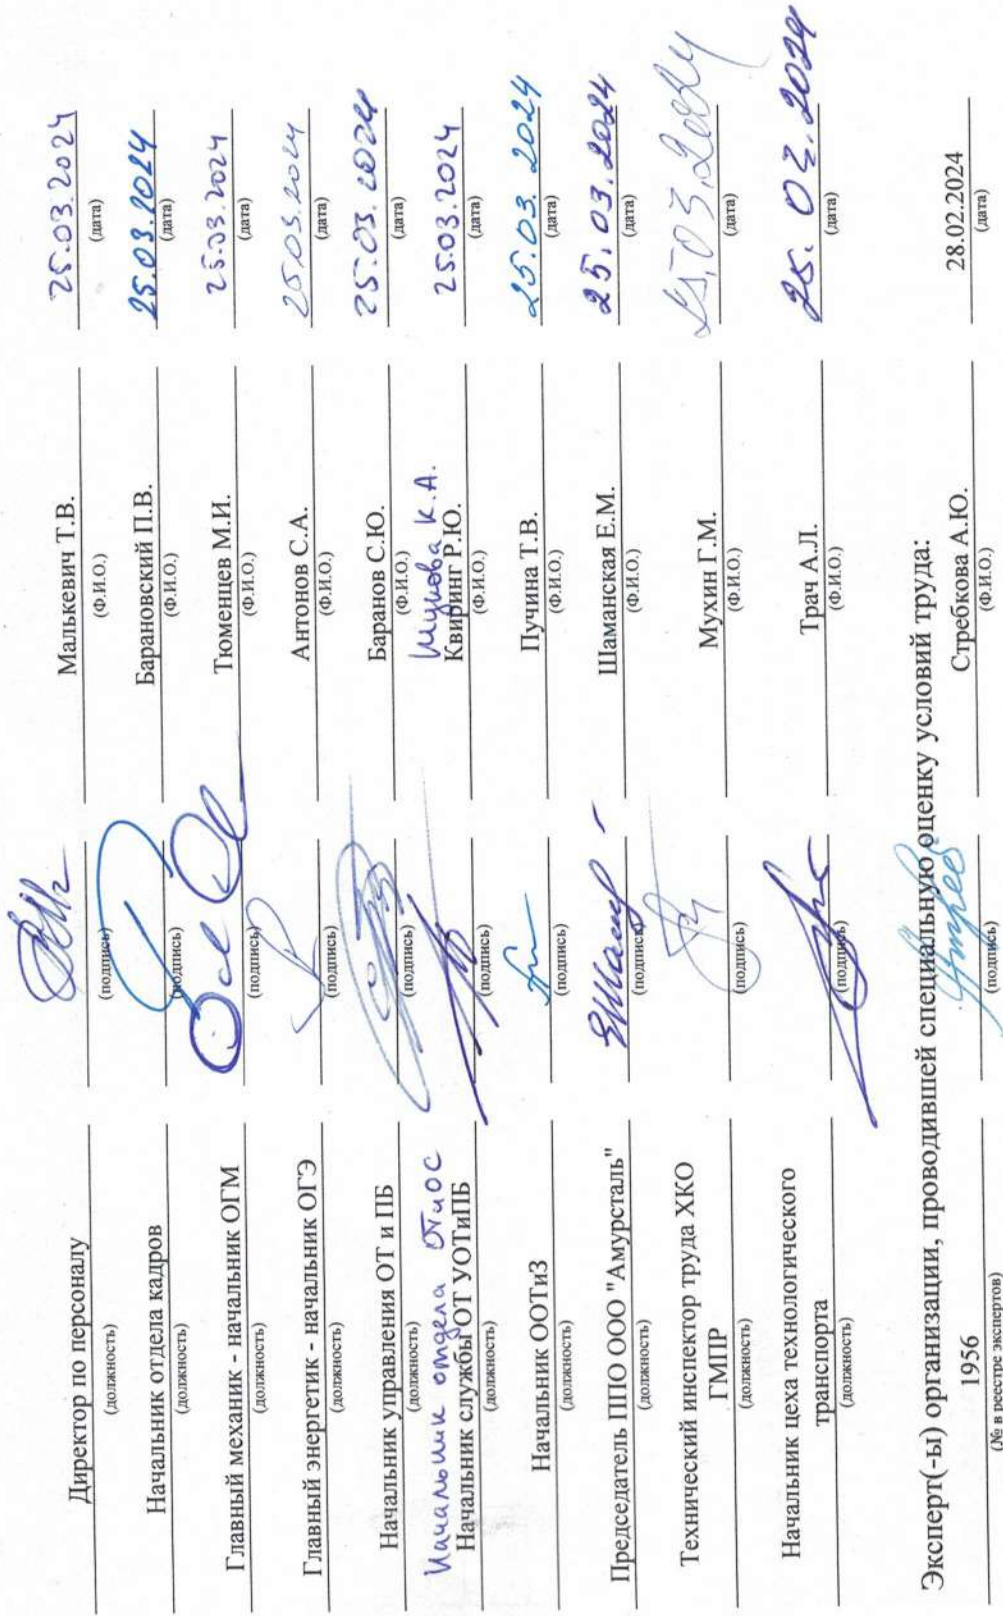 Директор по персоналу Малькевич Т.В. 25.03.2024
(должность) (подпись) (Ф.И.О.) (дата)
Начальник отдела кадров Барановский П.В. 25.03.2024
(должность) (подпись) (Ф.И.О.) (дата)
Главный механик - начальник ОГМ Тюменцев М.И. 25.03.2024
(должность) (подпись) (Ф.И.О.) (дата)
Главный энергетик - начальник ОГЭ Антонов С.А. 25.03.2024
(должность) (подпись) (Ф.И.О.) (дата)
Начальник управления ОТ и ПБ Баранов С.Ю. 25.03.2024
(должность) (подпись) (Ф.И.О.) (дата)
Начальник отдела ОТиОС К.А.
Начальник службы ОТ УОТиПБ Квиринг Р.Ю. 25.03.2024
(должность) (подпись) (Ф.И.О.) (дата)
Начальник ООТиЗ Пучина Т.В. 25.03.2024
(должность) (подпись) (Ф.И.О.) (дата)
Председатель ППО ООО "Амурсталь" Шаманская Е.М. 25.03.2024
(должность) (подпись) (Ф.И.О.) (дата)
Технический инспектор труда ХКО
ГМПР Мухин Г.М. 25.03.2024
(должность) (подпись) (Ф.И.О.) (дата)
Начальник цеха технологического
транспорта Трач А.Л. 25.03.2024
(должность) (подпись) (Ф.И.О.) (дата)
Эксперт(-ы) организации, проводившей специальную оценку условий труда:
1956 Стребкова А.Ю. 28.02.2024
(№ в реестре экспертов) (подпись) (Ф.И.О.) (дата)